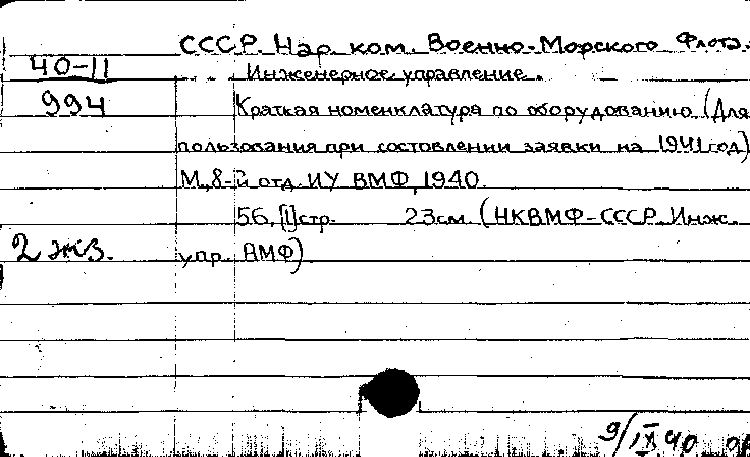 СССР. Нар. ком. Военно-Морского Флота.
40-11
Инженерное управление.
994
Краткая номенклатура по оборудованию (Для
пользования при состовлении заявки на 1941 год)
М., 8-й отд. ИУ ВМФ, 1940.
56, [1] стр. 23см. (НКВМФ-СССР. Инж.
2 экз.
упр. ВМФ)
9/IX 40